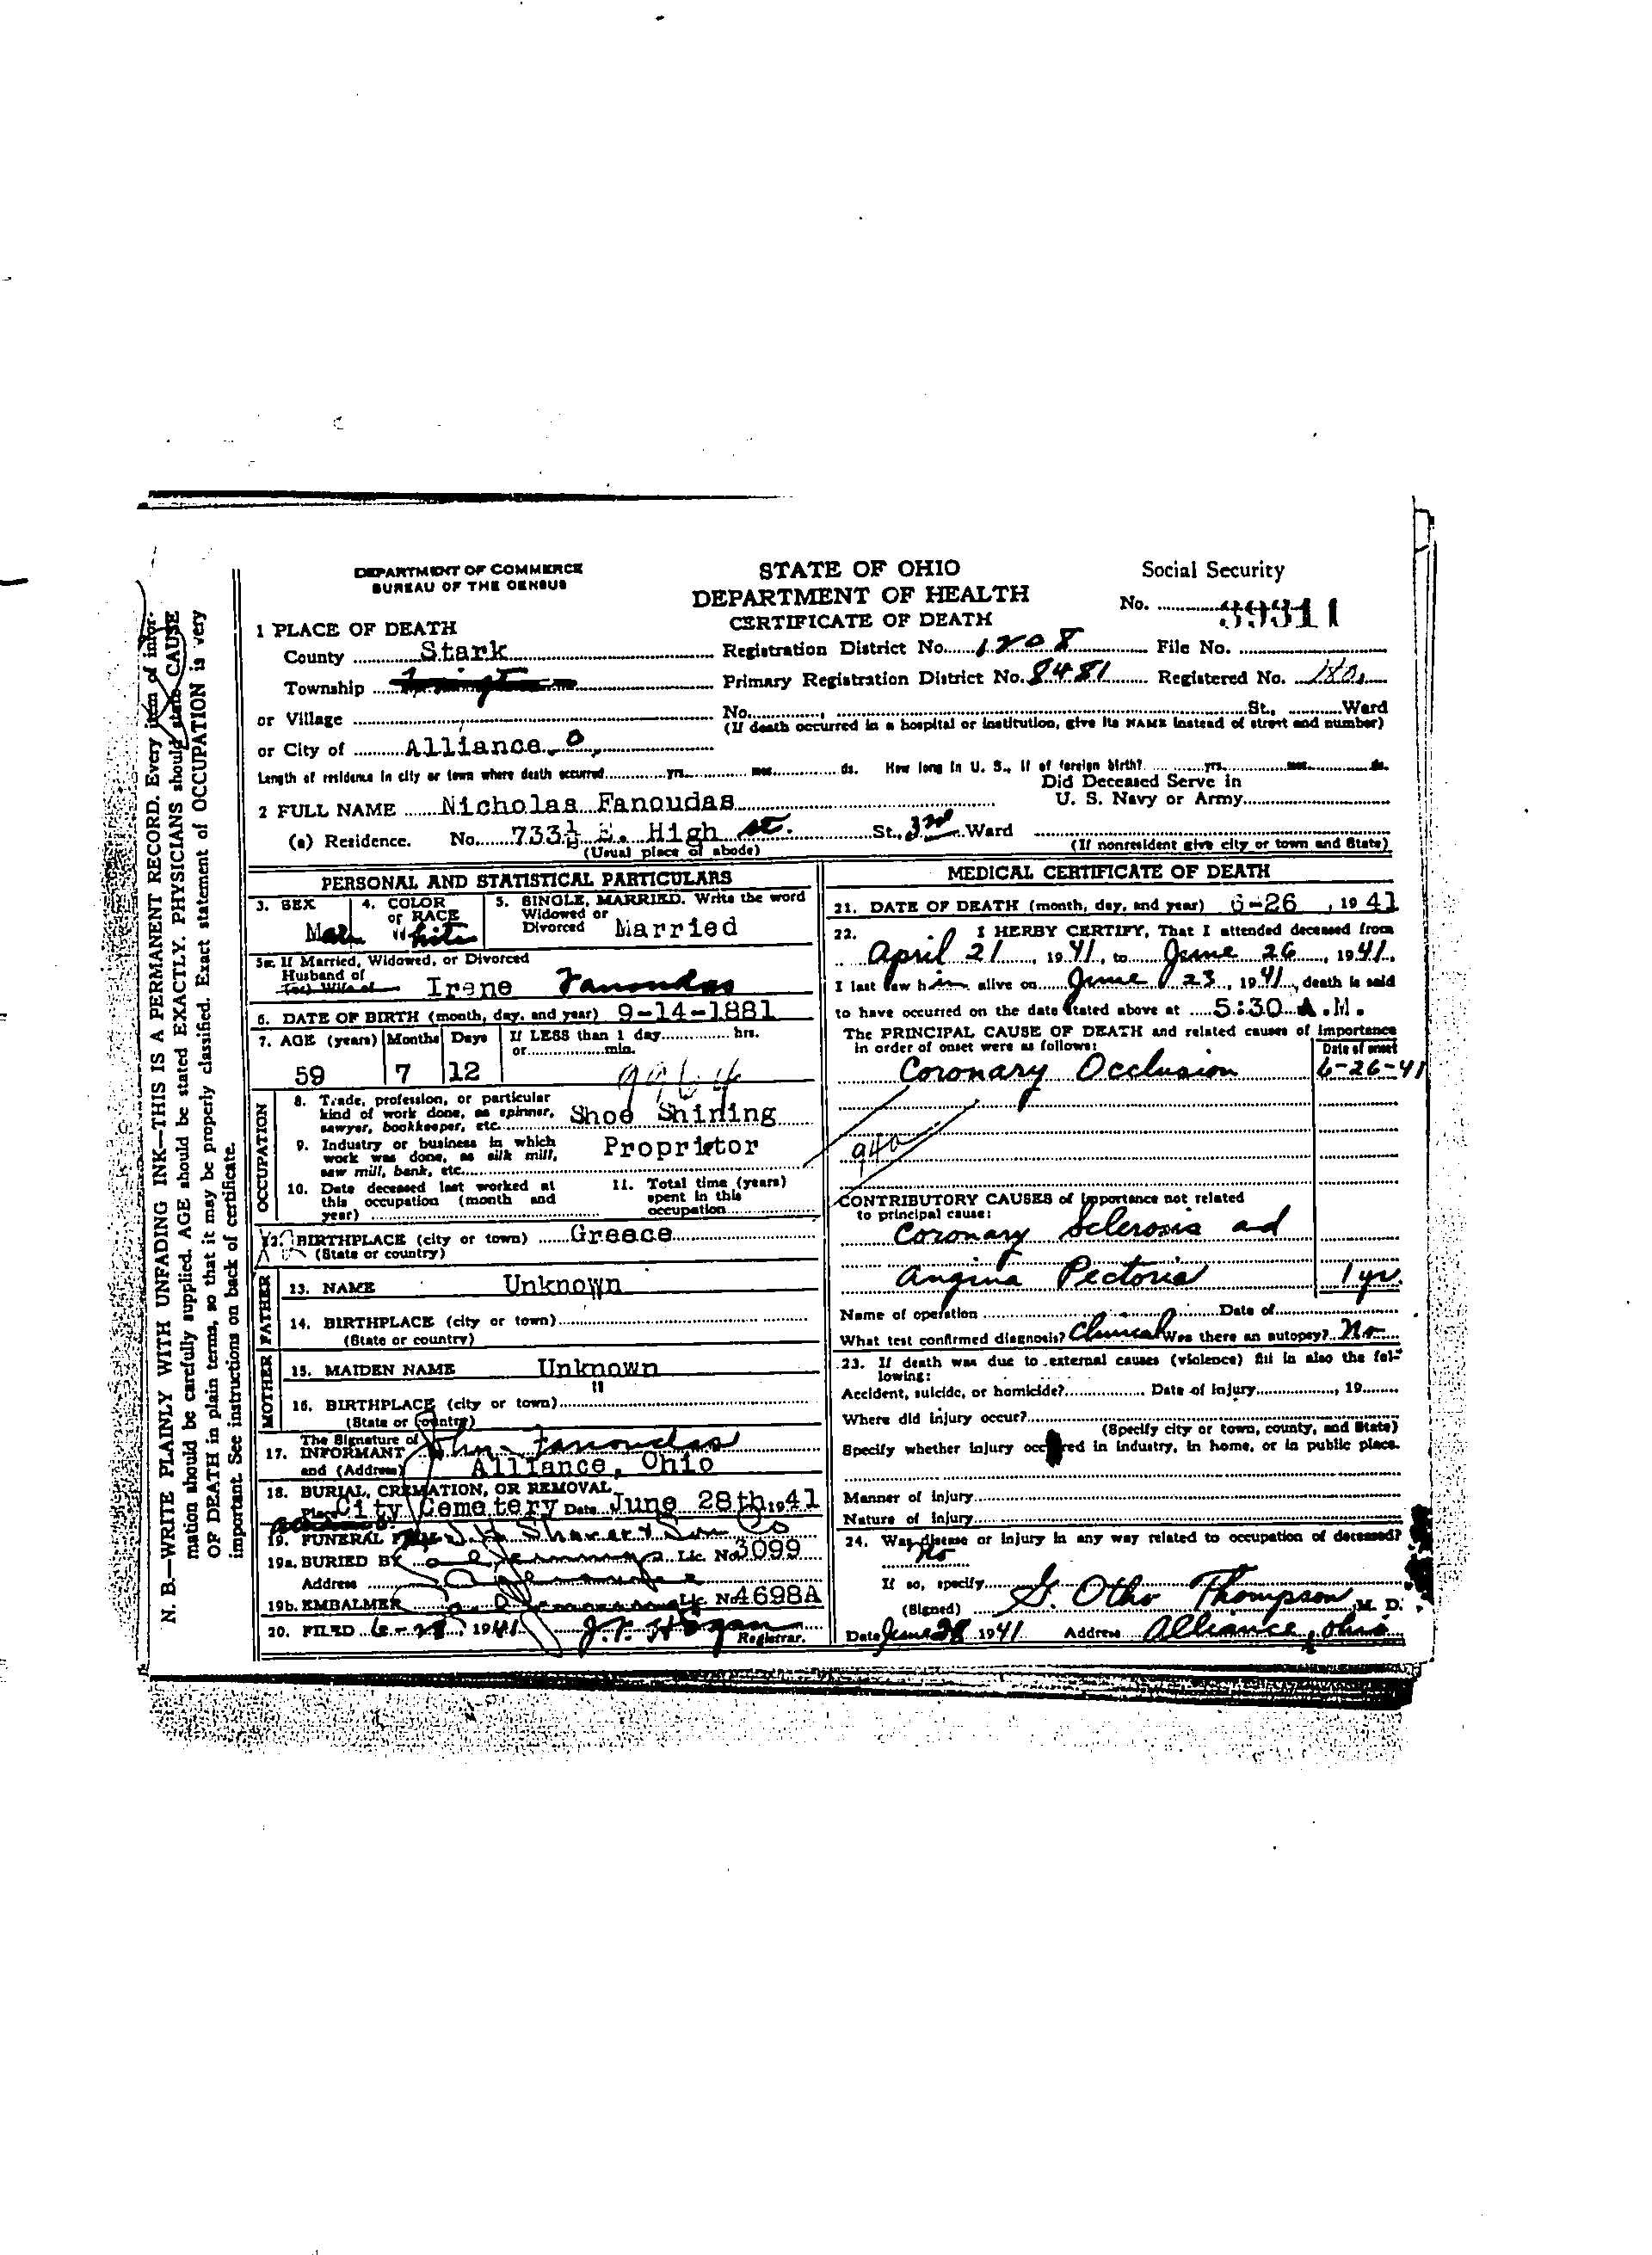 DEPARTMENT OF COMMERCE
BUREAU OF THE CENSUS
STATE OF OHIO
DEPARTMENT OF HEALTH
CERTIFICATE OF DEATH
Social Security
No. 39311
1 PLACE OF DEATH
County Stark
Registration District No. 1208 File No.
Township
Primary Registration District No. 8481 Registered No.
or Village
No. St., Ward
(If death occurred in a hospital or institution, give its NAME instead of street and number)
or City of Alliance, O,
Length of residence in city or town where death occurred yrs. mos. ds. How long in U. S., if of foreign birth? yrs. mos. ds.
2 FULL NAME Nicholas Fanoudas
Did Deceased Serve in
U. S. Navy or Army
(a) Residence. No. 733½ E. High St. St., 3rd Ward
(Usual place of abode)
(If nonresident give city or town and State)
PERSONAL AND STATISTICAL PARTICULARS
3. SEX
Male
4. COLOR or RACE
White
5. SINGLE, MARRIED. Write the word
Widowed or
Divorced Married
5a. If Married, Widowed, or Divorced
Husband of
(or) Wife of Irene Fanoudas
6. DATE OF BIRTH (month, day, and year) 9-14-1881
7. AGE (years) Months Days If LESS than 1 day hrs.
or min.
59 7 12
OCCUPATION
8. Trade, profession, or particular
kind of work done, as spinner,
sawyer, bookkeeper, etc. Shoe Shining
9. Industry or business in which
work was done, as silk mill,
saw mill, bank, etc. Proprietor
10. Date deceased last worked at
this occupation (month and
year)
11. Total time (years)
spent in this
occupation
12. BIRTHPLACE (city or town) Greece
(State or country)
FATHER
13. NAME Unknown
14. BIRTHPLACE (city or town)
(State or country)
MOTHER
15. MAIDEN NAME Unknown
"
16. BIRTHPLACE (city or town)
(State or country)
The Signature of
17. INFORMANT John Fanoudas
and (Address) Alliance, Ohio
18. BURIAL, CREMATION, OR REMOVAL
Place City Cemetery Date June 28th 1941
19. FUNERAL
19a. BURIED BY Lic. No. 3099
Address
19b. EMBALMER Lic. No. 4698A
20. FILED 1941 J. F. Hogan
Registrar.
MEDICAL CERTIFICATE OF DEATH
21. DATE OF DEATH (month, day, and year) 6-26, 1941
22. I HERBY CERTIFY, That I attended deceased from
April 21, 1941, to June 26, 1941.
I last saw him alive on June 23, 1941, death is said
to have occurred on the date stated above at 5:30 A.M.
The PRINCIPAL CAUSE OF DEATH and related causes of importance
in order of onset were as follows:
Date of onset
Coronary Occlusion 6-26-41
94a
CONTRIBUTORY CAUSES of importance not related
to principal cause:
Coronary Sclerosis and
Angina Pectoris 1 yr.
Name of operation Date of
What test confirmed diagnosis? Clinical Was there an autopsy? No
23. If death was due to external causes (violence) fill in also the fol-
lowing:
Accident, suicide, or homicide? Date of injury, 19
Where did injury occur?
(Specify city or town, county, and State)
Specify whether injury occurred in industry, in home, or in public place.
Manner of injury
Nature of injury
24. Was disease or injury in any way related to occupation of deceased?
No
If so, specify
(Signed) G. Otho Thompson, M. D.
Date June 28 1941 Address Alliance, Ohio
N. B.—WRITE PLAINLY WITH UNFADING INK—THIS IS A PERMANENT RECORD. Every item of infor-
mation should be carefully supplied. AGE should be stated EXACTLY. PHYSICIANS should state CAUSE
OF DEATH in plain terms, so that it may be properly classified. Exact statement of OCCUPATION is very
important. See instructions on back of certificate.